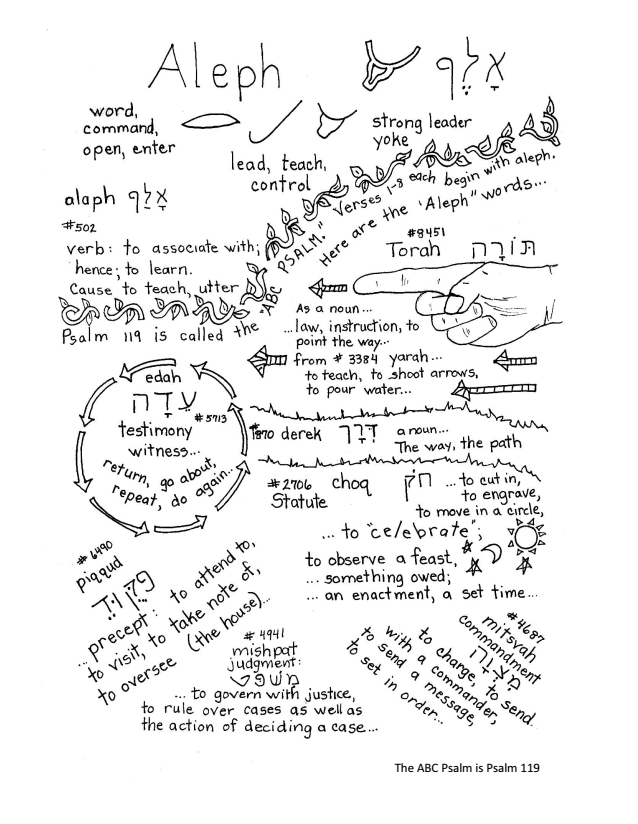 Aleph
אָלֶף
word,
command,
open, enter
lead, teach,
control
strong leader
yoke
alaph אָלַף
#502
verb: to associate with;
hence; to learn.
Cause to teach, utter
Psalm 119 is called the "ABC PSALM."
Verses 1-8 each begin with aleph.
Here are the 'Aleph" words...
#8451
Torah תּוֹרָה
As a noun...
...law, instruction, to
point the way...
from # 3384 yarah...
to teach, to shoot arrows,
to pour water...
edah
עֵדָה
#5713
testimony
witness...
return, go about,
repeat, do again...
#1870 derek דֶּרֶךְ a noun...
The way, the path
#2706 choq חֹק ...to cut in,
Statute
to engrave,
to move in a circle,
... to "celebrate";
to observe a feast,
... something owed;
... an enactment, a set time...
# 6490
piqqud
פִּקּוּד
...precept: to attend to,
to visit, to take note of,
to oversee (the house)...
# 4941
mishpat
judgment:
מִשְׁפָּט
... to govern with justice,
to rule over cases as well as
the action of deciding a case...
#4687
mitsvah
commandment
מִצְוָה
to charge, to send
with a commander,
to send a message,
to set in order...
The ABC Psalm is Psalm 119